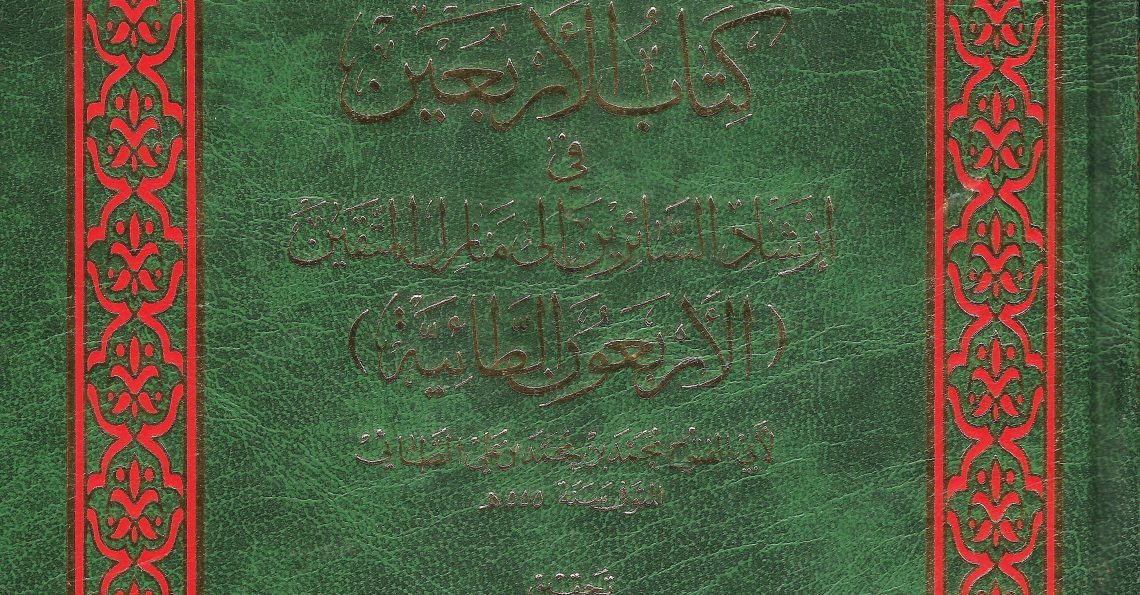 كتاب الأربعين
في
إرشاد السائرين إلى منازل المتقين
(الأربعون الطائية)
لأبي الفتوح محمد بن محمد بن علي الطائي
المتوفى سنة ٥٥٥هـ
تحقيق